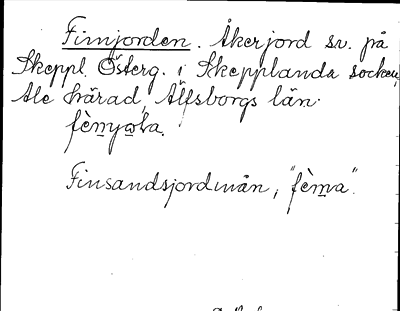 Finnjorden. Åkerjord sv. på
Skeppl. Österg. i Skepplanda socken,
Ale härad, Älfsborgs län.
Finsandsjordmån, "fèm̲a".